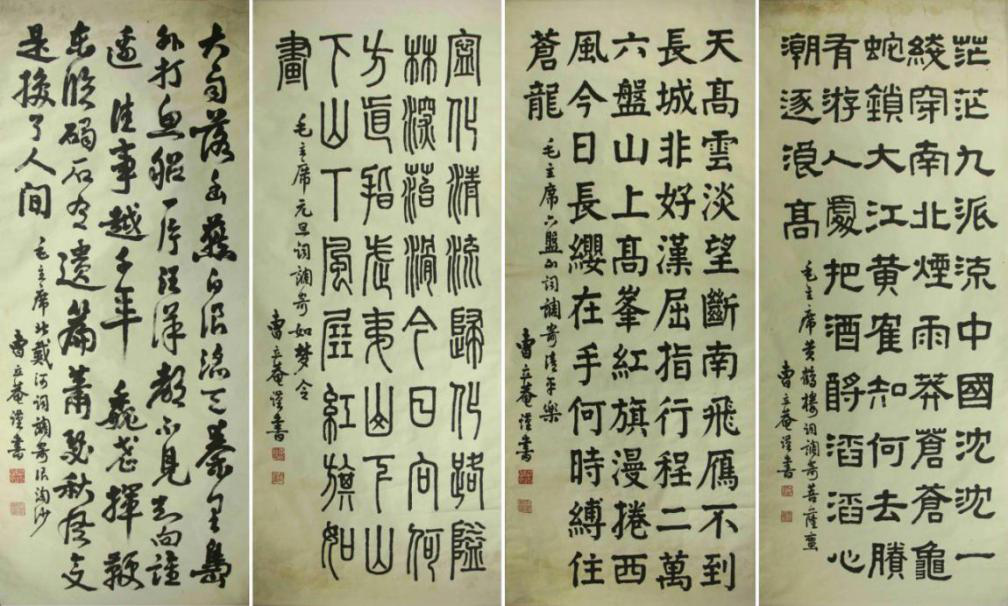 茫茫九派流中國沈沈一
綫穿南北煙雨莽蒼蒼龜
蛇鎖大江黄隺知何去賸
有游人處把酒酹滔滔心
潮逐浪髙
毛主席黄鹤楼词調寄菩薩蛮
曹立菴谨書
天髙雲淡望斷南飛雁不到
長城非好漢屈指行程二萬
六盤山上髙峯紅旗漫捲西
風今日長纓在手何時縛住
蒼龍
毛主席六盤山词調寄清平樂
曹立菴谨書
寧化清流歸化路隘
林深苔滑今日向何
方直指武夷山下山
下山下風展紅旗如
畫
毛主席元旦词調寄如梦令
曹立菴谨書
大雨落幽燕白浪滔天秦皇島
外打魚船一片汪洋都不見知向誰
邊往事越千年魏武揮鞭
東临碣石有遺篇蕭瑟秋風今又
是换了人间
毛主席北戴河词調寄浪淘沙
曹立菴谨書